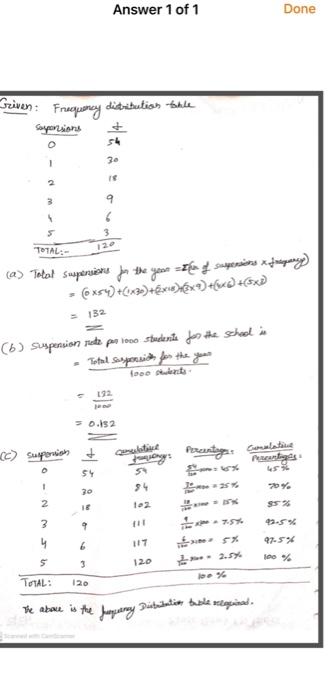 Answer 1 of 1 Done
Given: Frequency distribution table
Suspensions f
0 54
1 30
2 18
3 9
4 6
5 3
TOTAL:- 120
(a) Total suspensions for the year = Σ(no of suspensions x frequency)
= (0x54)+(1x30)+(2x18)+(3x9)+(4x6)+(5x3)
= 132
(b) Suspension rate per 1000 students for the school is
= Total suspension for the year
1000 students.
= 132
1000
= 0.132
(c) suspension f cumulative frequency: Percentage: Cumulative Percentages:
0 54 54 54/120 x100 = 45% 45%
1 30 84 30/120 x100 = 25% 70%
2 18 102 18/120 x100 = 15% 85%
3 9 111 9/120 x100 = 7.5% 92.5%
4 6 117 6/120 x100 = 5% 97.5%
5 3 120 3/120 x100 = 2.5% 100%
TOTAL: 120 100%
The above is the frequency Distribution table required.
Scanned with CamScanner